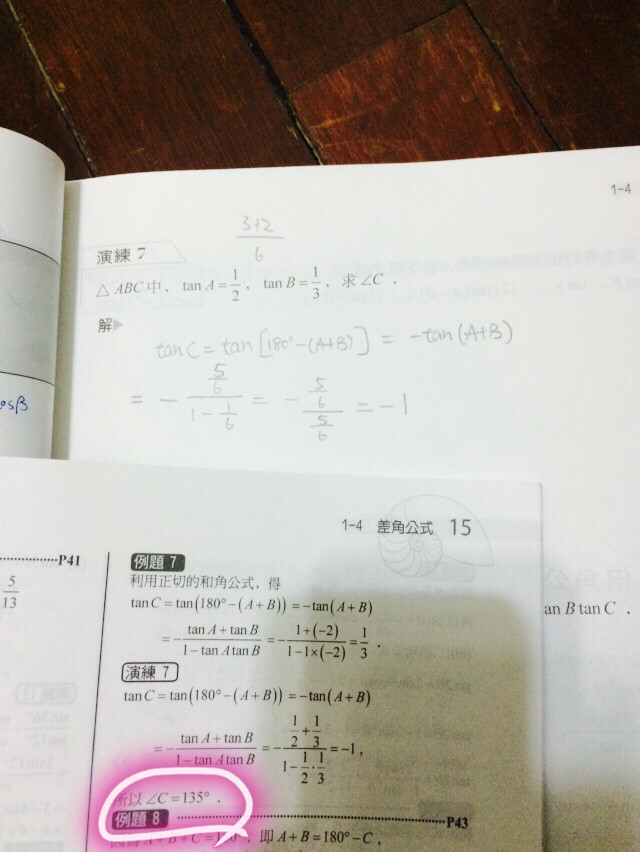 1-4
3+2
6
演練 7
△ABC中，tan A=1/2，tan B=1/3，求∠C．
解▶
tan C = tan[180°-(A+B)] = -tan(A+B)
= - (5/6)/(1 - 1/6) = - (5/6)/(5/6) = -1
osβ
1-4 差角公式 15
P41
5/13
例題 7
利用正切的和角公式，得
tan C=tan(180°-(A+B))=-tan(A+B)
=-(tan A+tan B)/(1-tan A tan B)=-(1+(-2))/(1-1×(-2))=1/3．
an B tan C．
演練 7
tan C=tan(180°-(A+B))=-tan(A+B)
=-(tan A+tan B)/(1-tan A tan B)=-(1/2+1/3)/(1-1/2·1/3)=-1，
所以∠C=135°．
例題 8 P43
A+B+C=180°，即A+B=180°-C，